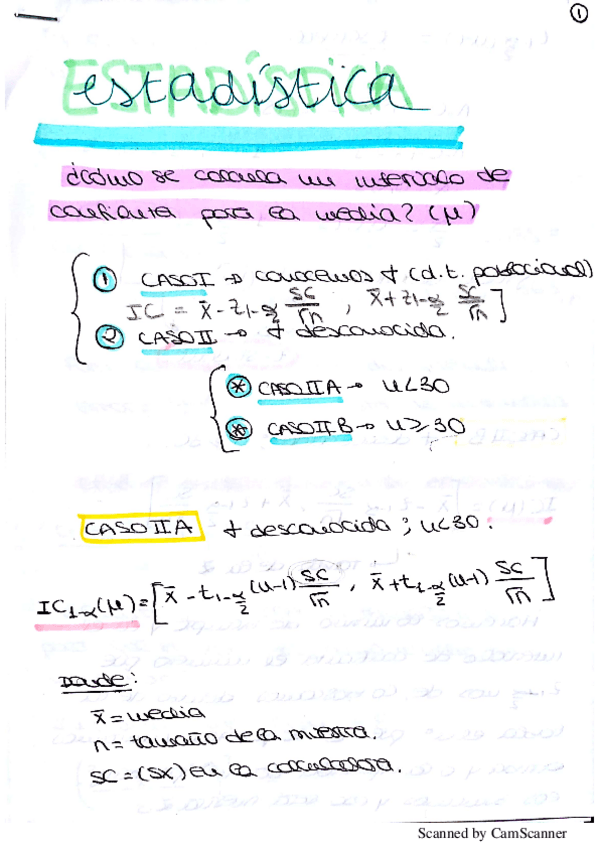 1
estadística
¿cómo se calcula un intervalo de
confianza para la media? (μ)
① CASO I → conocemos σ (d.t. poblacional)
IC = x̄ - z1-α/2 sc/√n , x̄ + z1-α/2 sc/√n ]
② CASO II → σ desconocida.
* CASO II A → n<30
* CASO II B → n≥30
CASO II A σ desconocida ; n<30:
IC1-α(μ) = [ x̄ - t1-α/2 (n-1) sc/√n , x̄ + t1-α/2 (n-1) sc/√n ]
Donde:
x̄ = media
n = tamaño de la muestra.
sc = (sx) en la calculadora.
Scanned by CamScanner